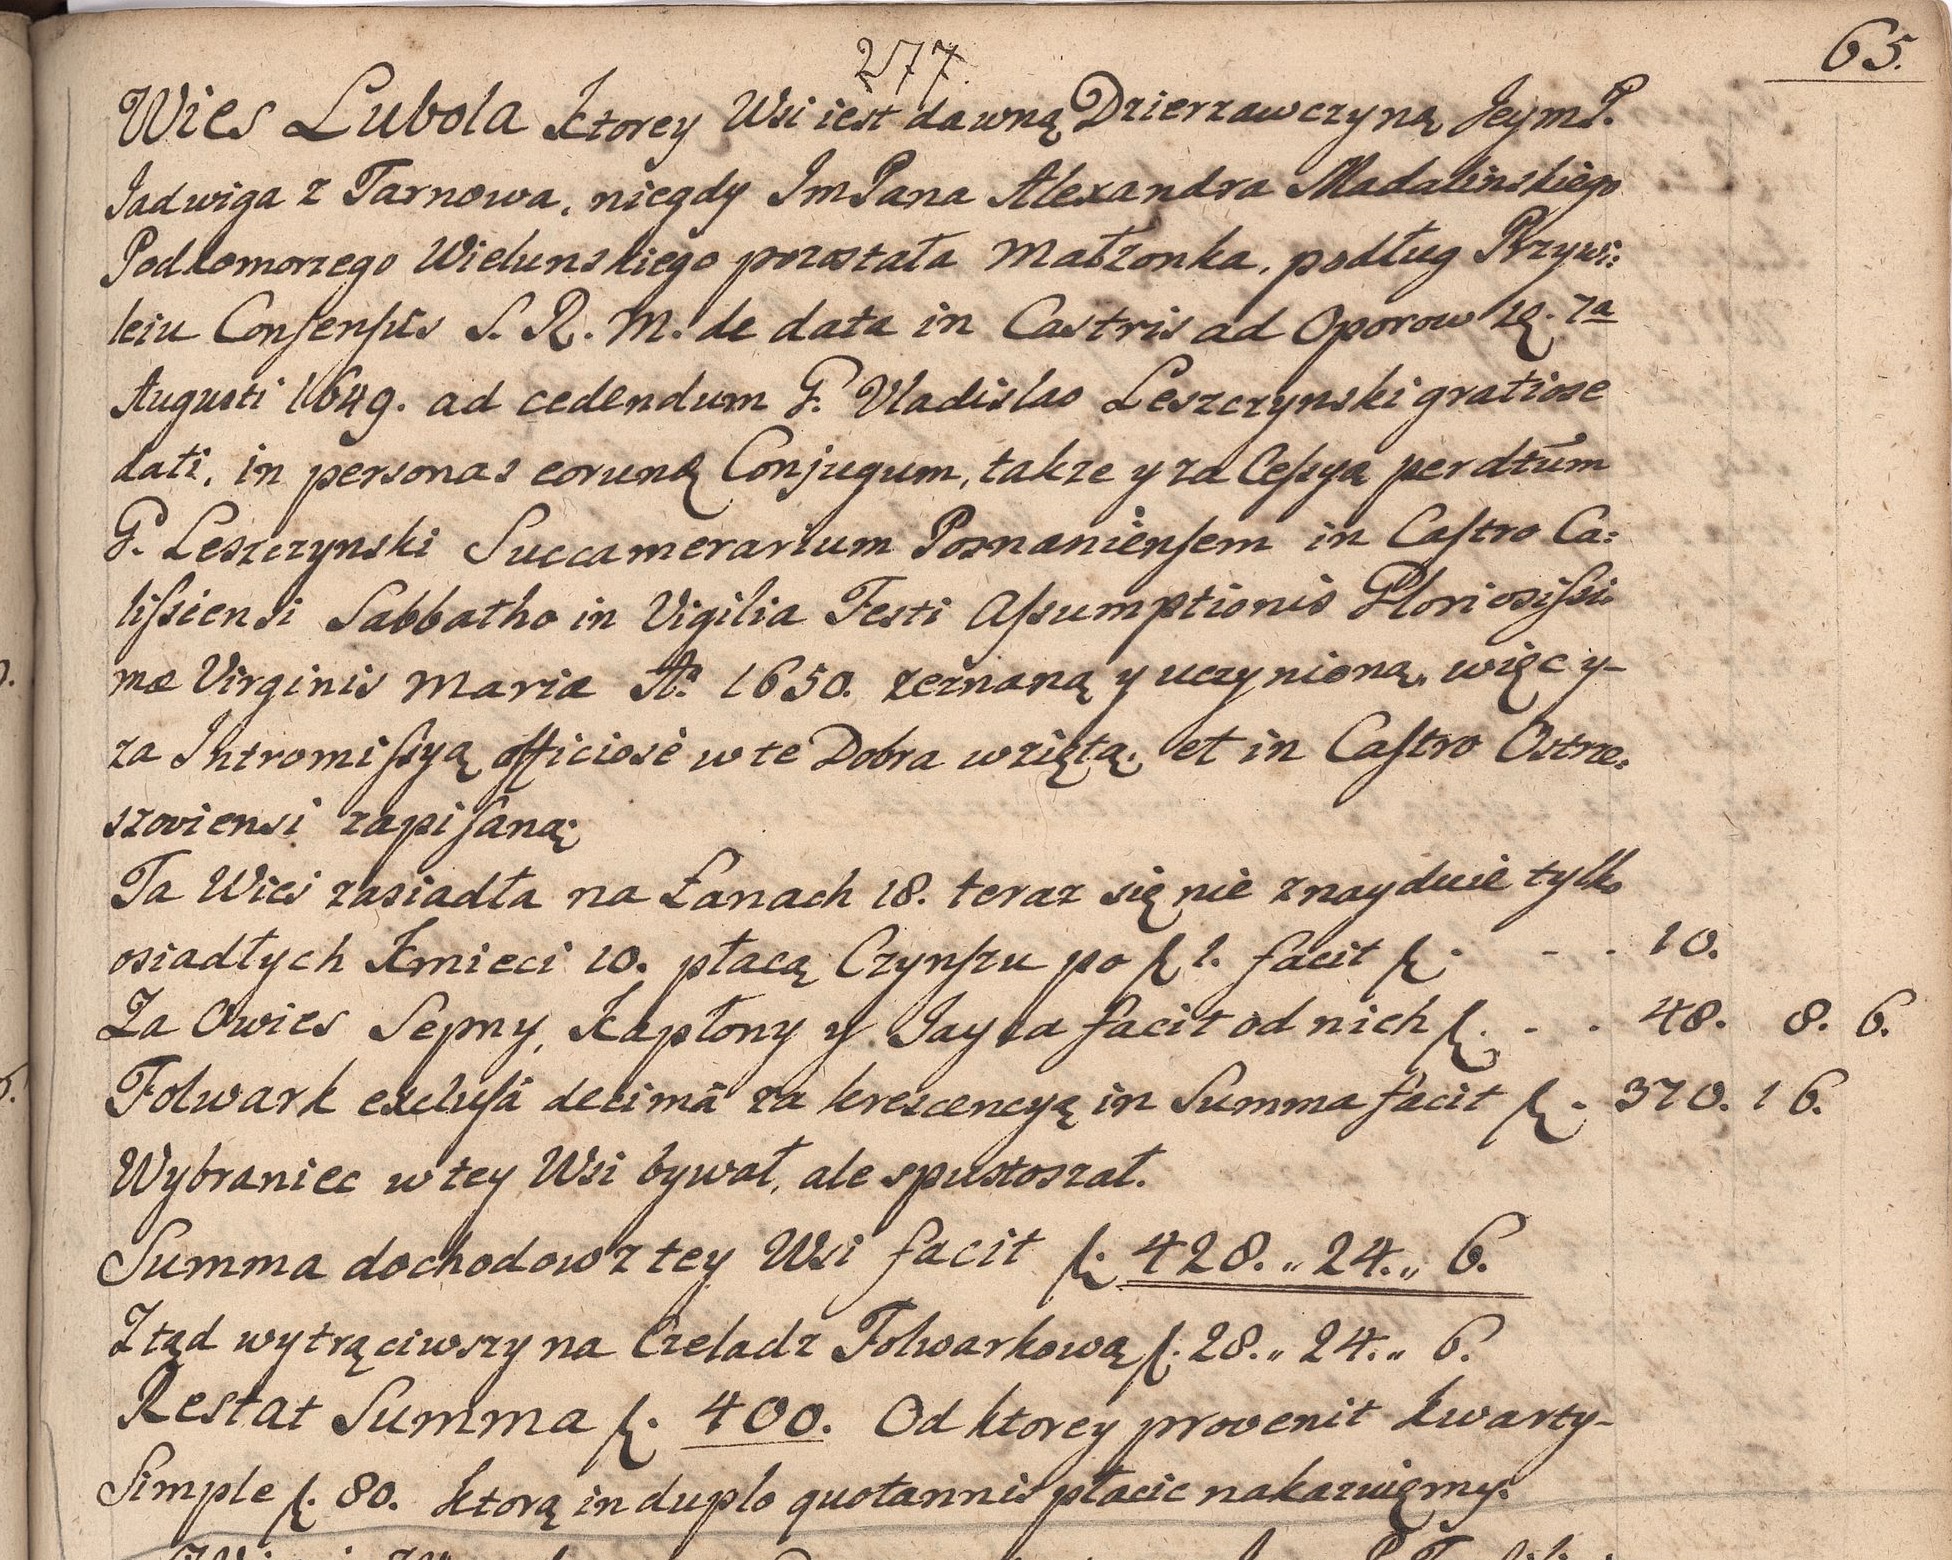 277.
65.
Wies Lubola ktorey Wsi iest dawną Dzierzawczyną JeymP.
Jadwiga z Tarnowa, niegdy ImPana Alexandra Madalinskiego
Podkomorzego Wielunskiego pozostała Małzonka, podług Przywi:
leiu Consensûs S. R. M. de data in Castris ad Oporow
Augusti 1649. ad cedendum G. Vladislao Leszczynski gratiose
dati, in personas eorund Conjugum, takze y za Cessyą per dtum
G. Leszczynski Succamerarium Posnaniensem in Castro Ca:
lissiensi Sabbatho in Vigilia Festi Assumptionis Gloriosissi:
mæ Virginis Mariæ Aº 1650. zeznaną y uczynioną, więc y-
za Intromissyą officiosè w te Dobra wziętą, et in Castro Ostrze:
szoviensi zapisaną;
Ta Wies zasiadła na Łanach 18. teraz się nie znayduie tylko
osiadłych Kmieci 10. płacą Czynszu po fl 1. facit fl. - - 10.
Za Owies Sepny, Kapłony y Jayca facit od nich fl. - - 48. 8. 6.
Folwark exclusâ decimâ za krescencyą in Summa facit fl. 370. 16.
Wybraniec w tey Wsi bywał, ale spustoszał.
Summa dochodow z tey Wsi facit fl. 428. „ 24. „ 6.
Ztąd wytrąciwszy na Czeladz Folwarkową fl. 28. „ 24. „ 6.
Restat Summa fl. 400. Od ktorey provenit kwarty-
Simple fl. 80. ktorą in duplo quotannis płacic nakazuięmy.